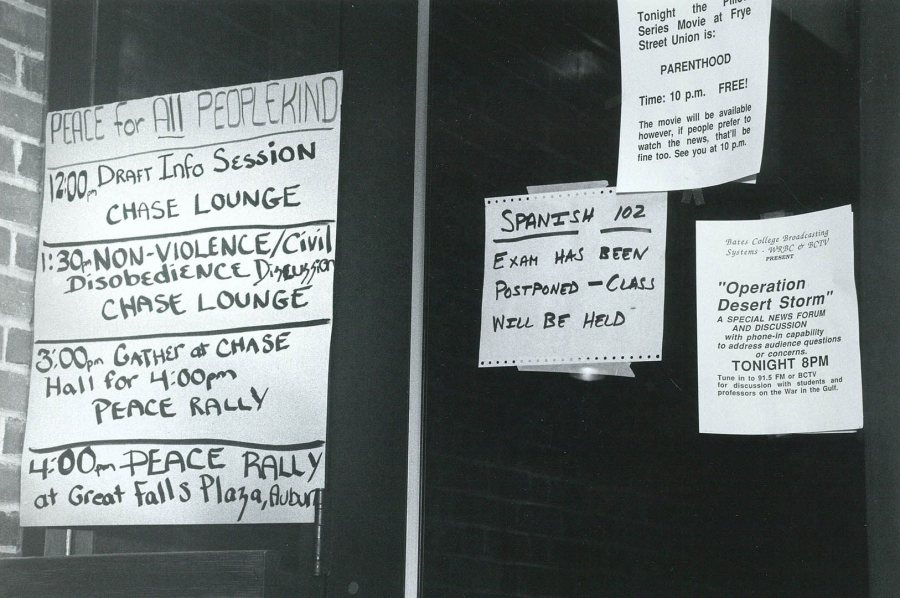 PEACE for All PEOPLEKIND
12:00pm DRAFT Info SESSION
CHASE LOUNGE
1:30pm NON-VIOLENCE/Civil
DisobEDIENCE DISCUSSION
CHASE LOUNGE
3:00pm GATHER at CHASE
Hall for 4:00pm
PEACE RALLY
4:00pm PEACE RALLY
at Great Falls Plaza, Auburn
SPANISH 102
EXAM HAS BEEN
POSTPONED - CLASS
WILL BE HELD
Tonight the
Series Movie at Frye
Street Union is:
PARENTHOOD
Time: 10 p.m. FREE!
The movie will be available
however, if people prefer to
watch the news, that'll be
fine too. See you at 10 p.m.
Bates College Broadcasting
Systems - WRBC & BCTV
PRESENT
"Operation
Desert Storm"
A SPECIAL NEWS FORUM
AND DISCUSSION
with phone-in capability
to address audience questions
or concerns.
TONIGHT 8PM
Tune in to 91.5 FM or BCTV
for discussion with students and
professors on the War in the Gulf.